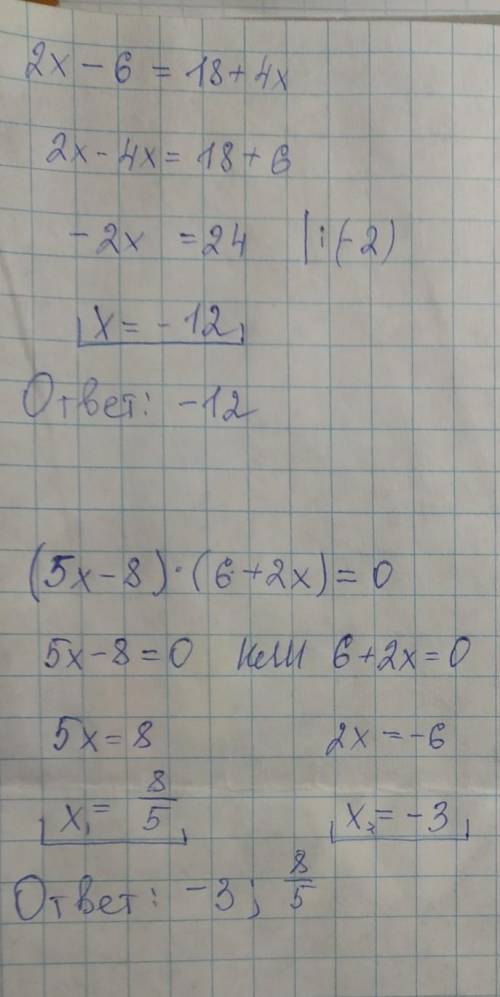 2x - 6 = 18 + 4x
2x - 4x = 18 + 6
-2x = 24 |:(-2)
x = -12
Ответ: -12
(5x - 8) · (6 + 2x) = 0
5x - 8 = 0 или 6 + 2x = 0
5x = 8 2x = -6
x₁ = 8/5 x₂ = -3
Ответ: -3; 8/5